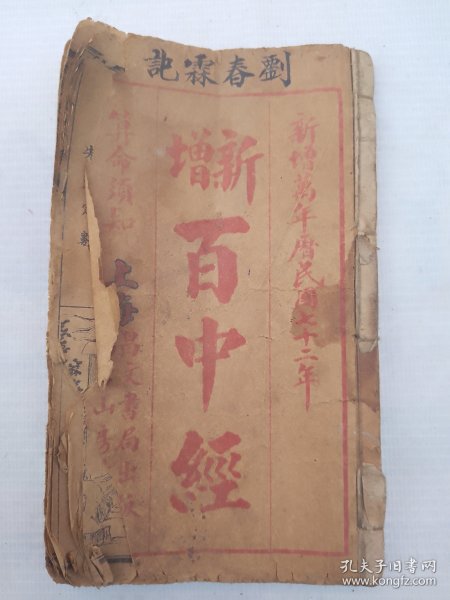 劉春霖記
新增萬年曆民國七十二年
新增
百中經
算命須知
上海昌文書局出版
山房
孔夫子旧书网
www.kongfz.com